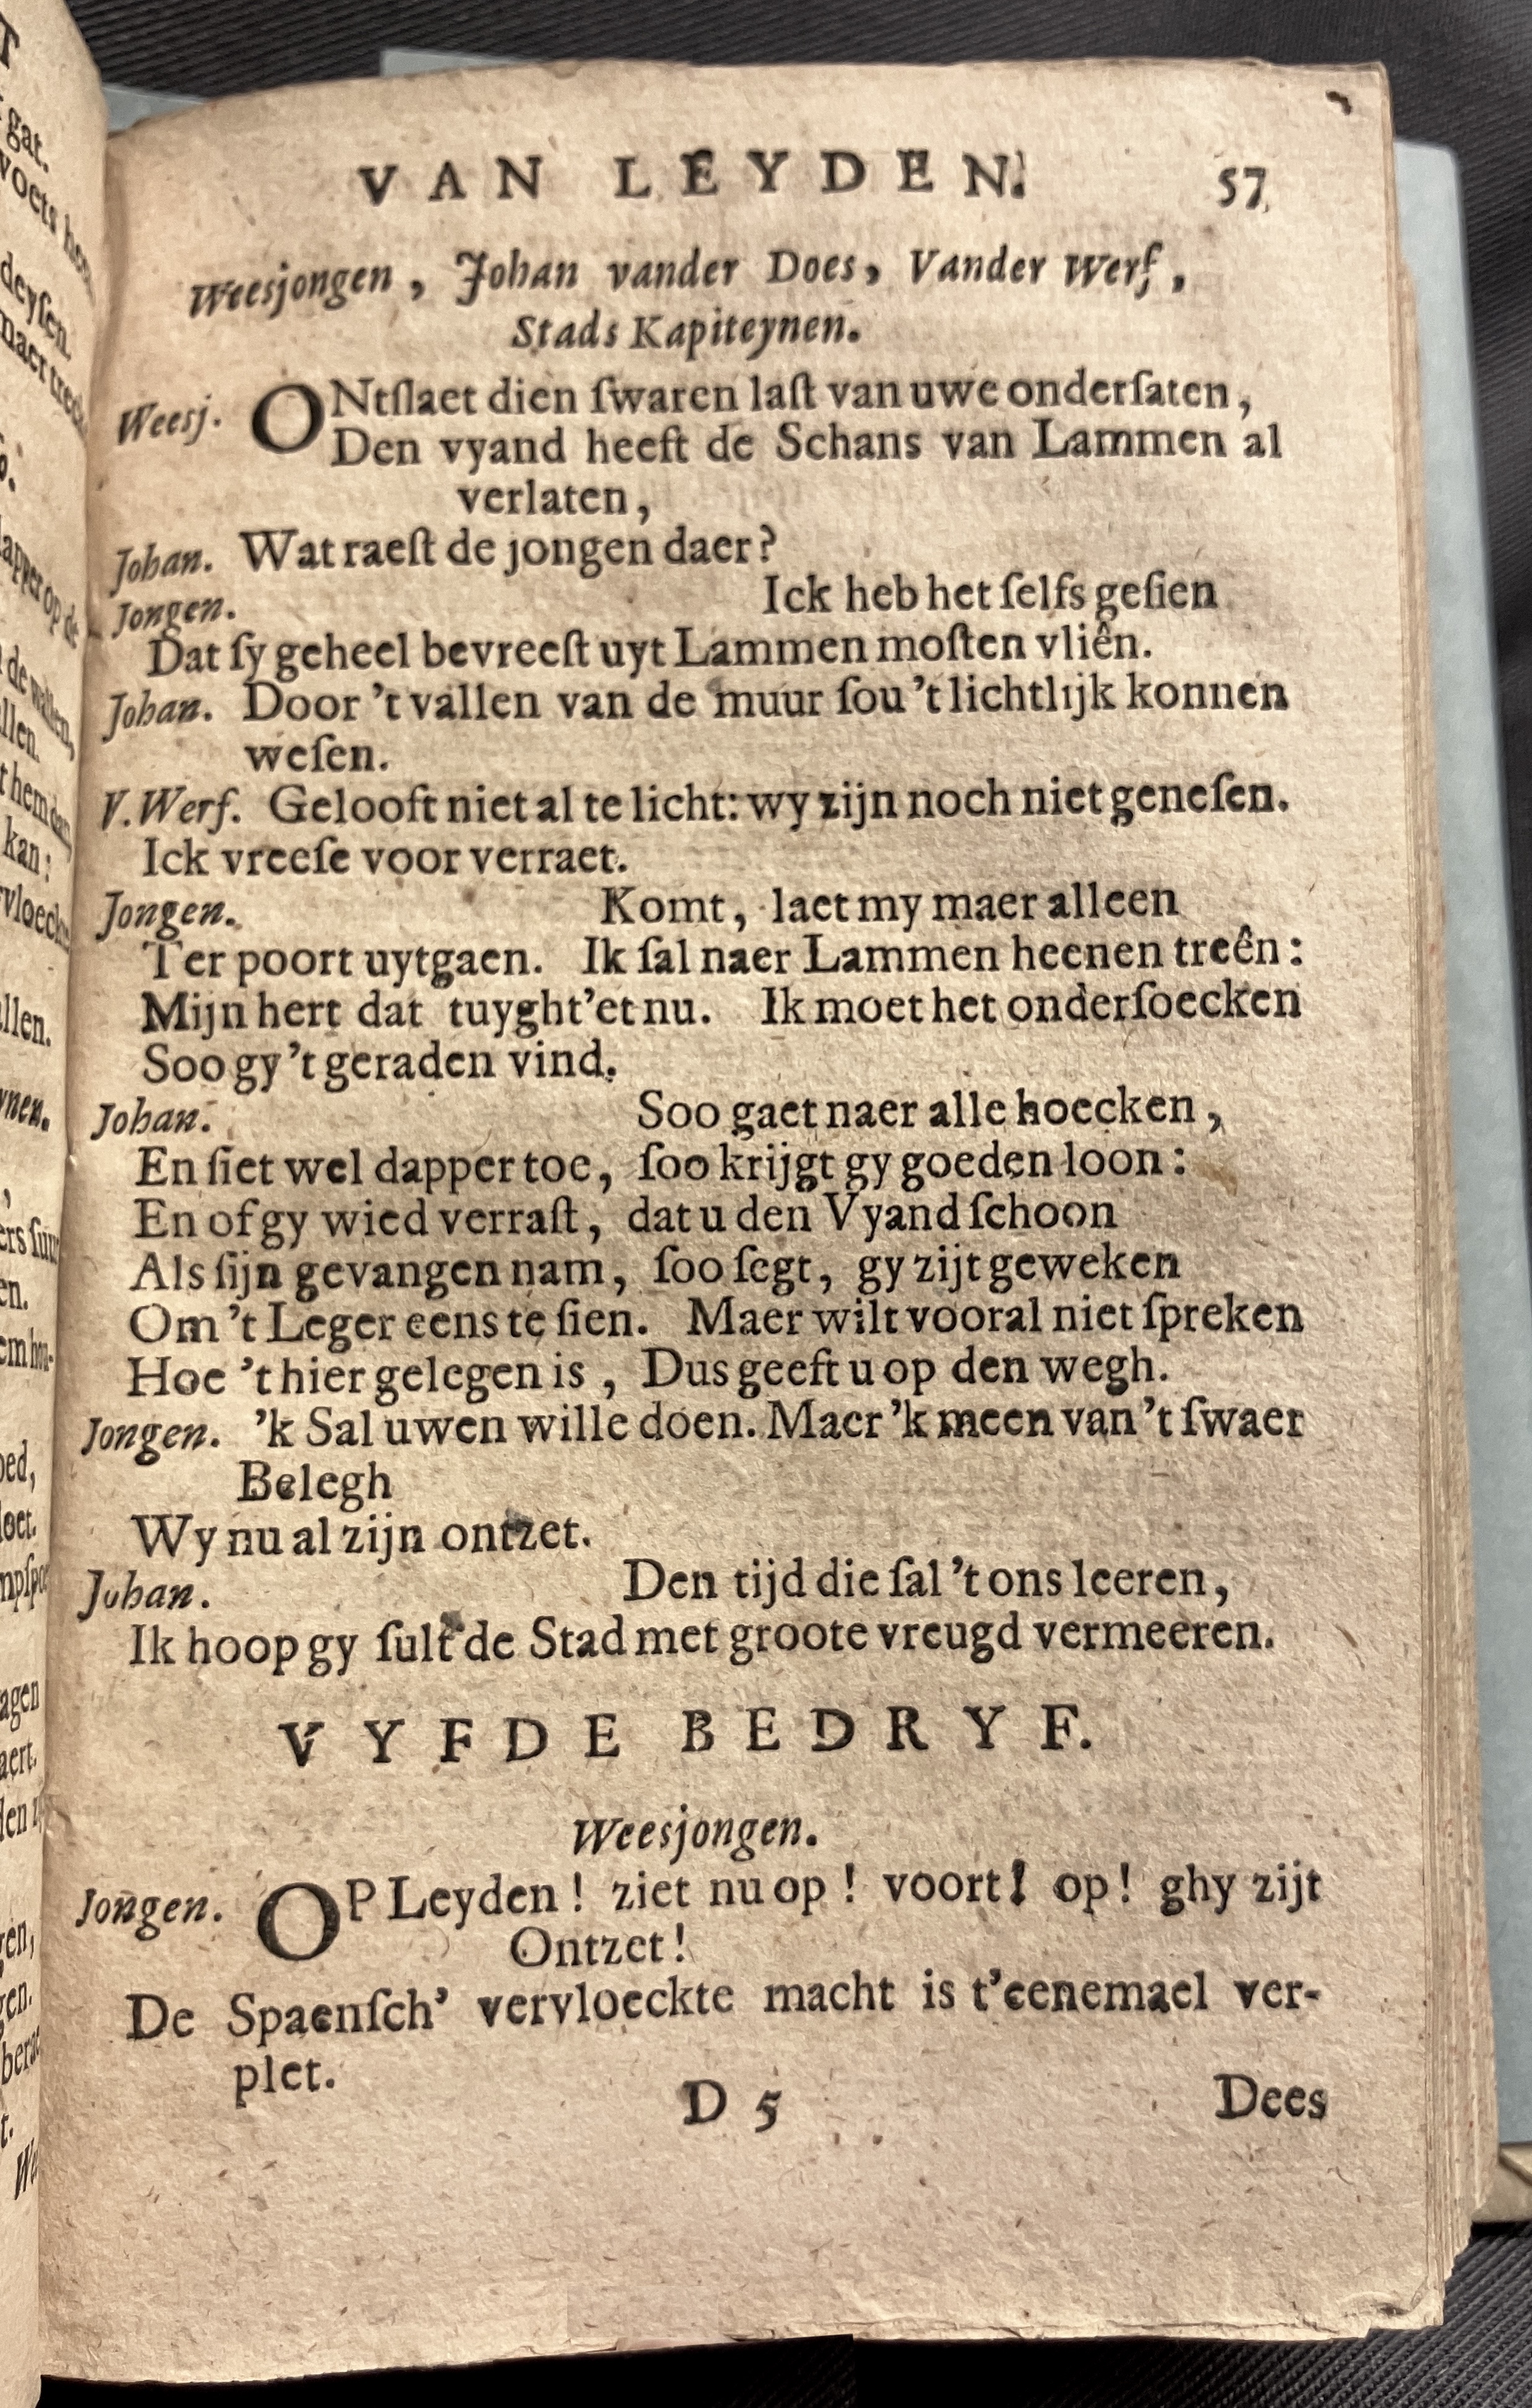 VAN LEYDEN. 57
Weesjongen, Johan vander Does, Vander Werf,
Stads Kapiteynen.
Weesj. ONtſlaet dien ſwaren laſt van uwe onderſaten,
Den vyand heeft de Schans van Lammen al
verlaten,
Johan. Wat raeſt de jongen daer?
Jongen. Ick heb het ſelfs geſien
Dat ſy geheel bevreeſt uyt Lammen moſten vliên.
Johan. Door 't vallen van de muur ſou 't lichtlijk konnen
weſen.
V. Werf. Gelooft niet al te licht: wy zijn noch niet geneſen.
Ick vreeſe voor verraet.
Jongen. Komt, laet my maer alleen
Ter poort uytgaen. Ik ſal naer Lammen heenen treên:
Mijn hert dat tuyght'et nu. Ik moet het onderſoecken
Soo gy 't geraden vind.
Johan. Soo gaet naer alle hoecken,
En ſiet wel dapper toe, ſoo krijgt gy goeden loon:
En of gy wied verraſt, dat u den Vyand ſchoon
Als ſijn gevangen nam, ſoo ſegt, gy zijt geweken
Om 't Leger eens te ſien. Maer wilt vooral niet ſpreken
Hoe 't hier gelegen is, Dus geeft u op den wegh.
Jongen. 'k Sal uwen wille doen. Maer 'k meen van 't ſwaer
Belegh
Wy nu al zijn ontzet.
Johan. Den tijd die ſal 't ons leeren,
Ik hoop gy ſult de Stad met groote vreugd vermeeren.
VYFDE BEDRYF.
Weesjongen.
Jongen. OP Leyden! ziet nu op! voort! op! ghy zijt
Ontzet!
De Spaenſch' vervloeckte macht is t'eenemael ver-
plet.
D 5 Dees